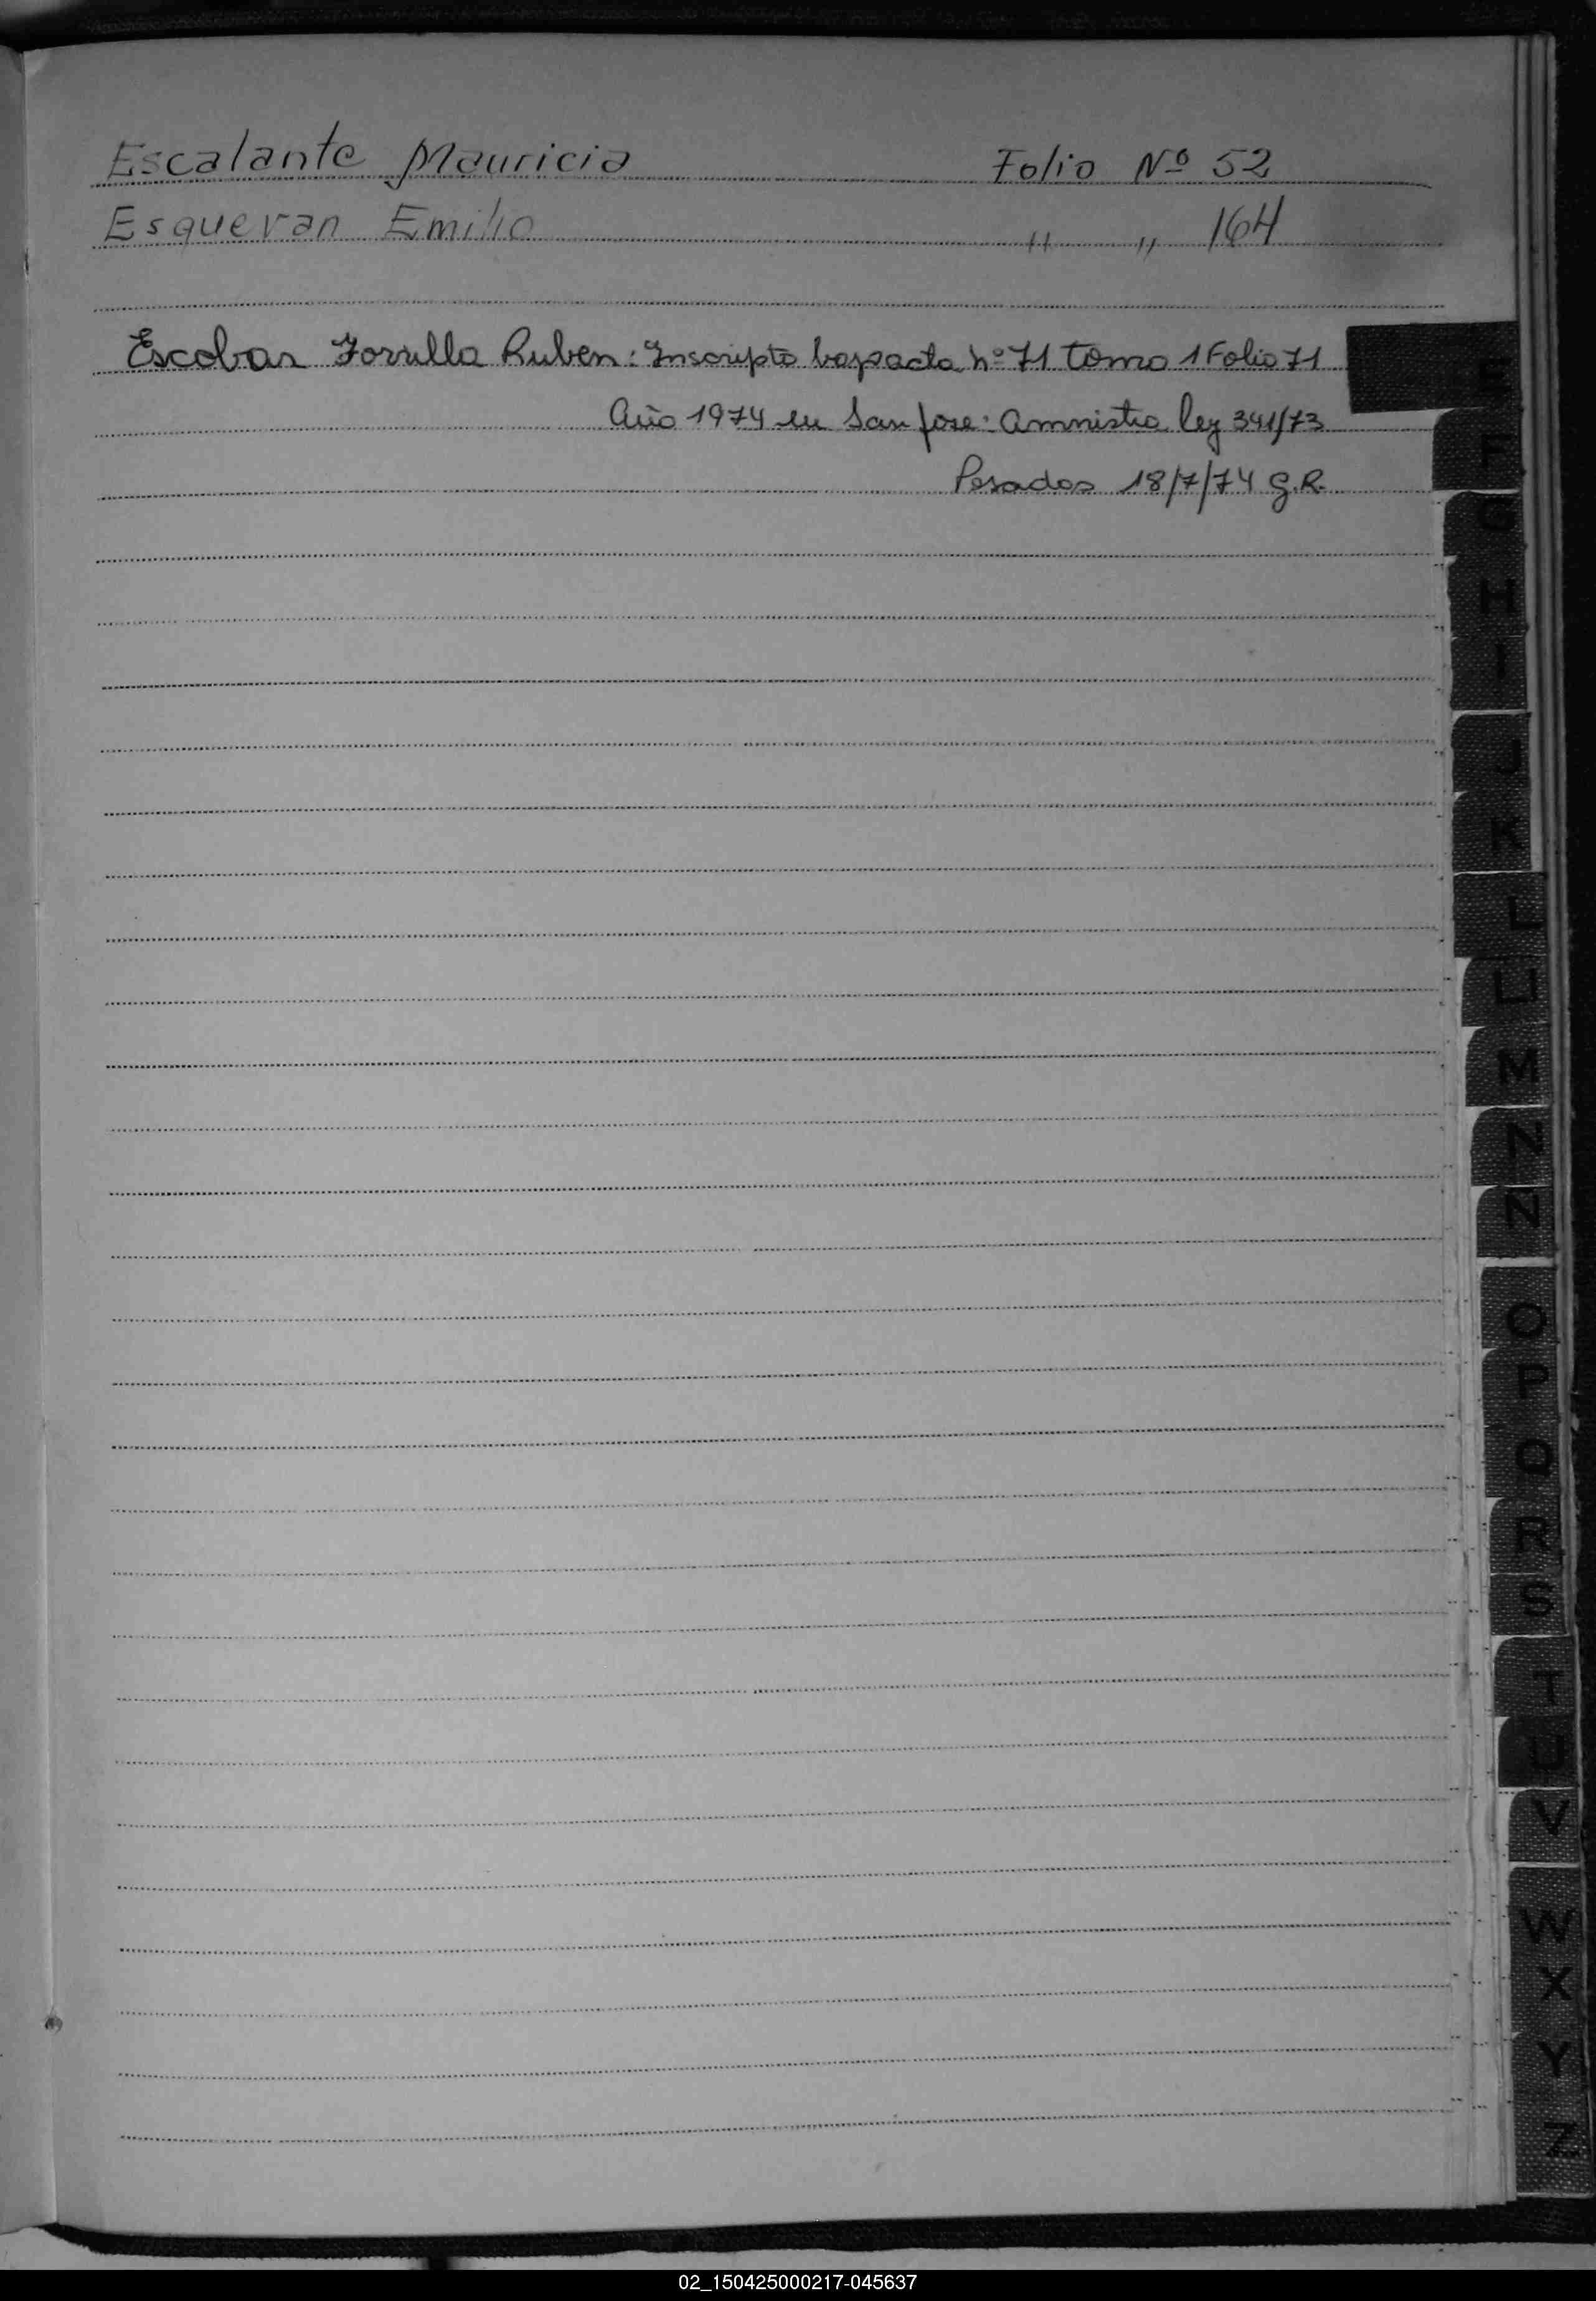 Escalante Mauricia Folio Nº 52
Esquevan Emilio " " 164
Escobar Zorrilla Ruben: Inscripto bajo acta nº 71 tomo 1 Folio 71
Año 1974 en San Jose: Amnistia ley 341/73
Posadas 18/7/74 G.R.
E
F
G
H
I
J
K
L
LL
M
N
Ñ
O
P
Q
R
S
T
U
V
W
X
Y
Z
02_150425000217-045637